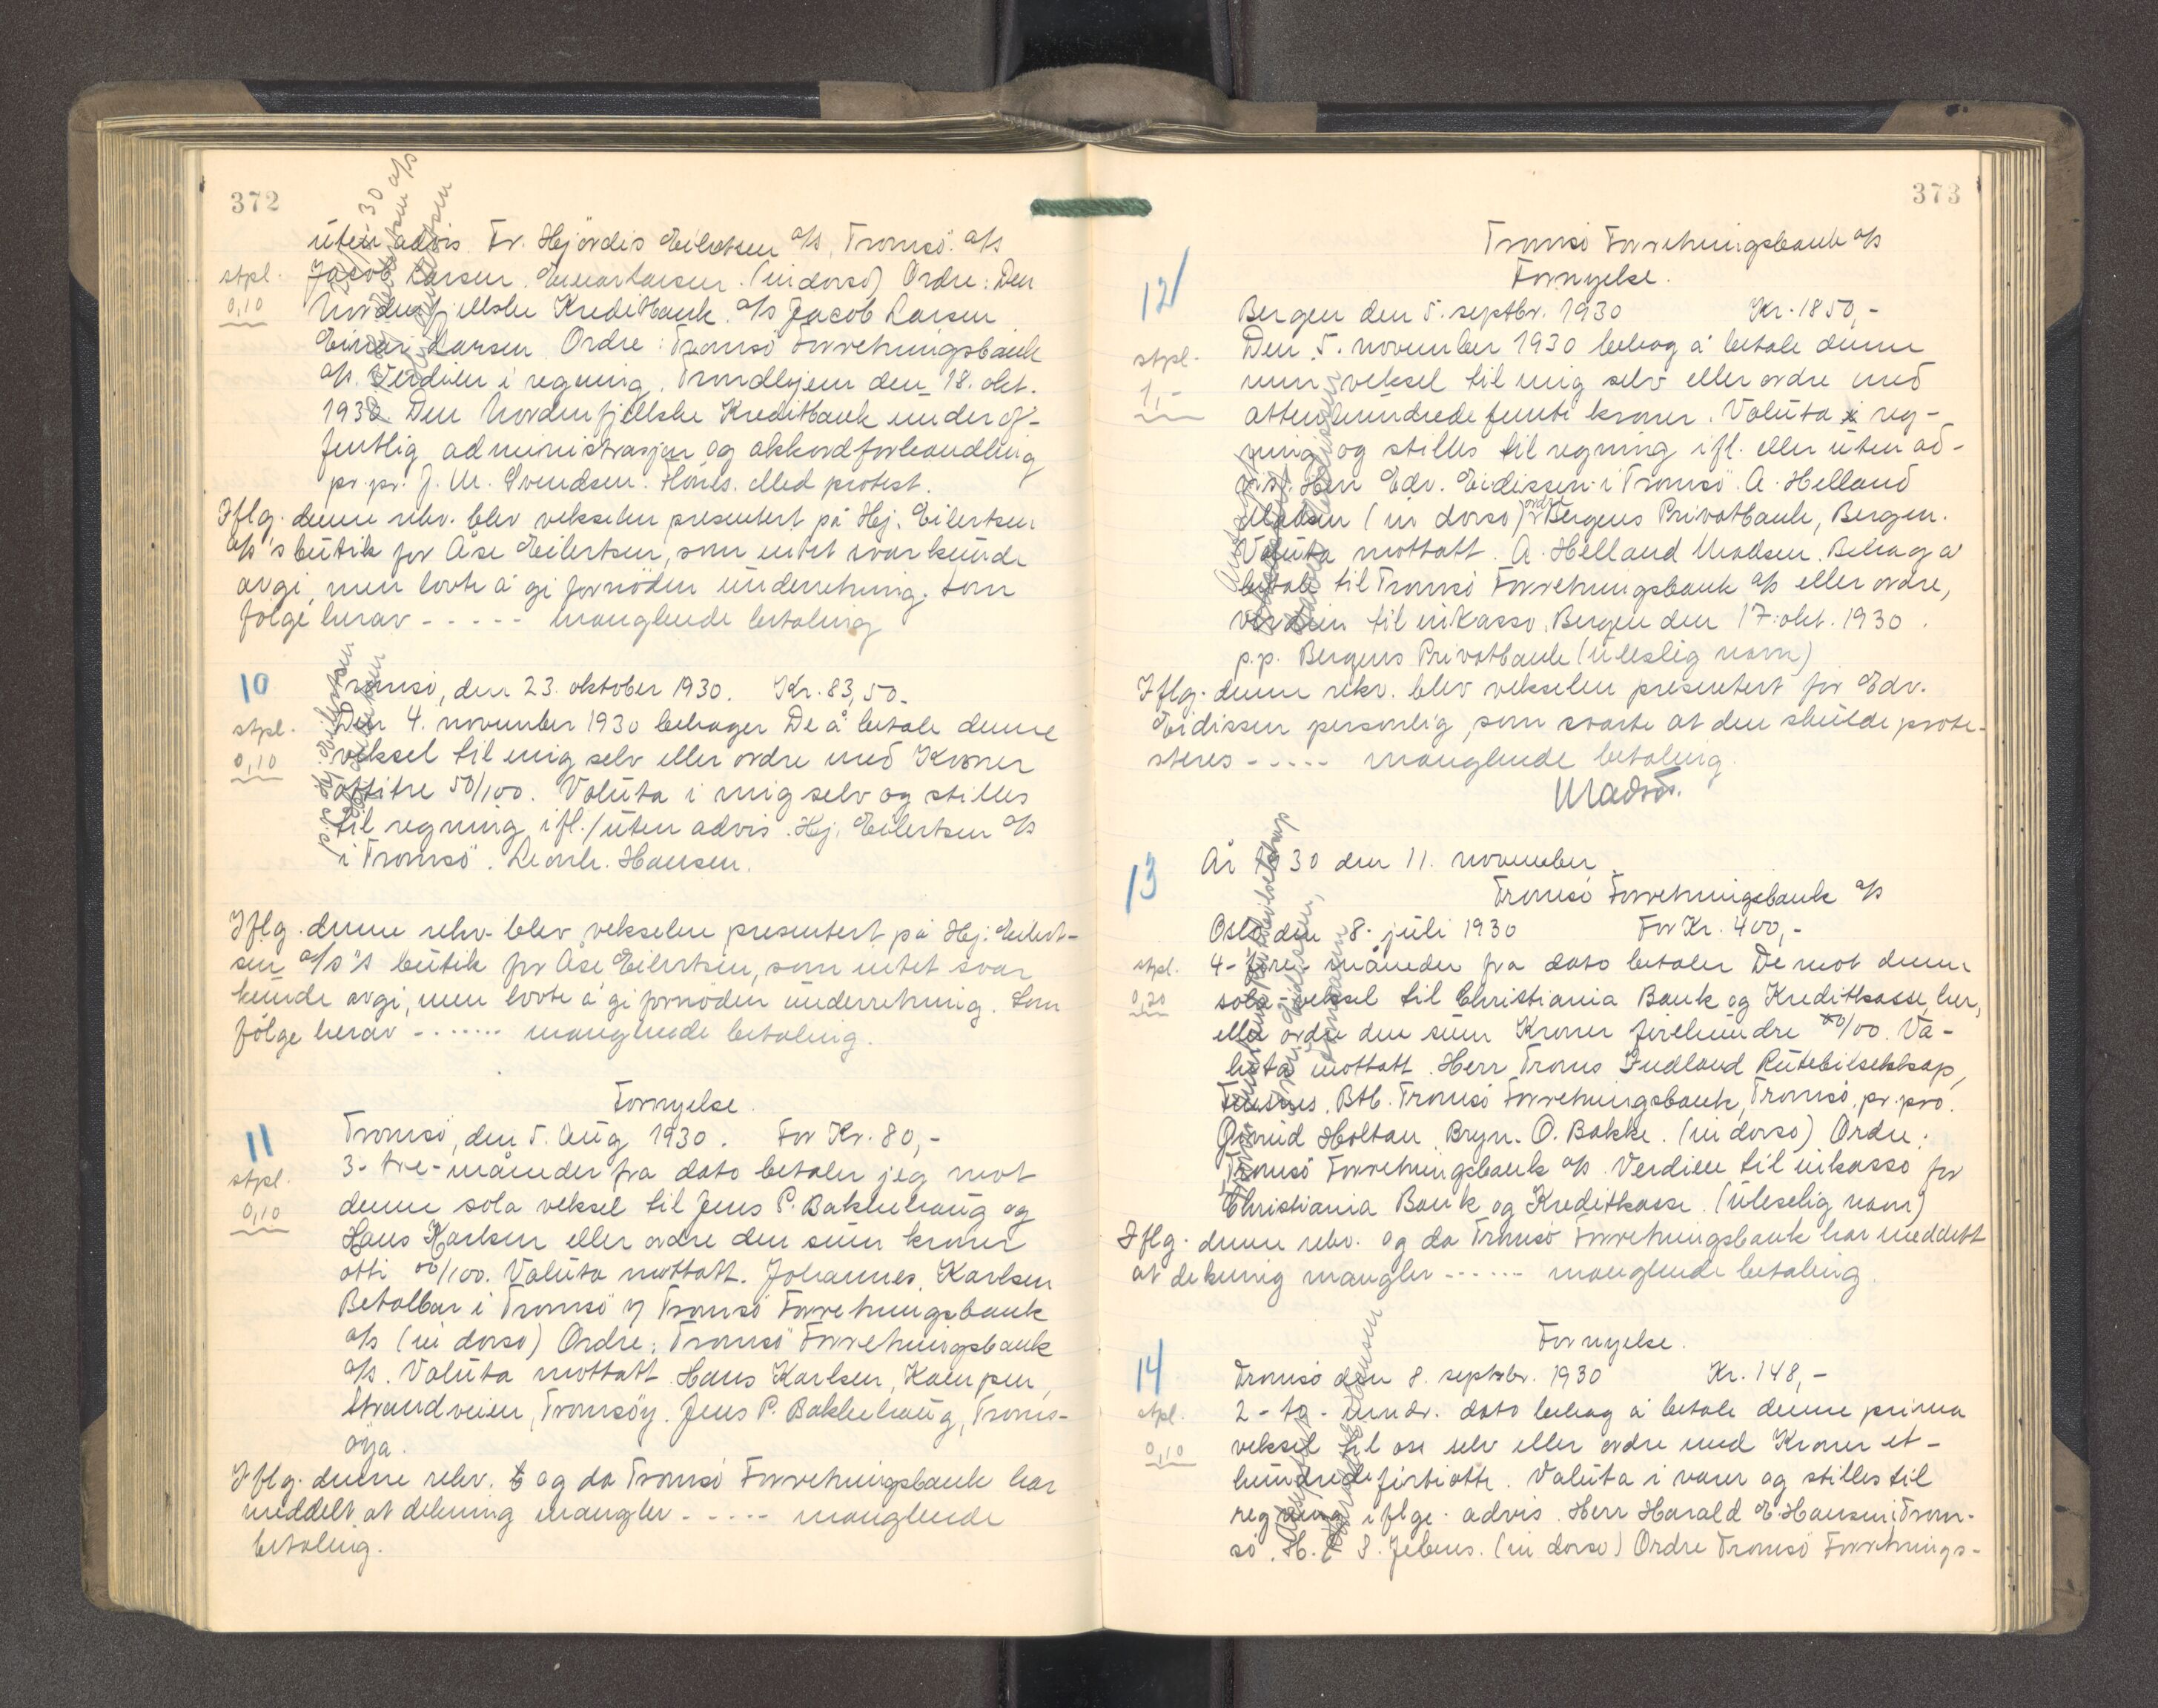 372
uten advis. Fr. Hjördis Eilertsen a/s, Tromsö. a/s
stpl. 0,10
Jacob Larsen. Einar Larsen. (in dorso) Ordre: Den
Nordenfjellske Kreditbank. a/s Jacob Larsen
Einar Larsen. Ordre: Tromsö Forretningsbank
a/s. Verdien i regning. Trondhjem den 18. okt.
1930. Den Nordenfjellske Kreditbank under of-
fentlig administrasjon og akkordforhandling
pr. pr. J. M. Svendsen. Hönls. Med protest.
Iflg. denne rekv. blev vekselen presentert på Hj. Eilertsen
a/s's butik for Åse Eilertsen, som intet svar kunde
avgi, men lovte å gi fornöden underretning. Som
fölge herav - - - - - manglende betaling
10
Tromsö, den 23. oktober 1930. Kr. 83,50.
stpl. 0,10
Den 4. november 1930 behager De å betale denne
veksel til mig selv eller ordre med Kroner
ottitre 50/100. Valuta i mig selv og stilles
til regning ifl./uten advis. Hj. Eilertsen a/s
i Tromsö. Leonh. Hansen.
p.p. Hj. Eilertsen
Iflg. denne rekv. blev vekselen presentert på Hj. Eilert-
sen a/s's butik for Åse Eilertsen, som intet svar
kunde avgi, men lovte å gi fornöden underretning. Som
fölge herav - - - - - - - manglende betaling.
Fornyelse.
11
Tromsö, den 5. Aug 1930. For Kr. 80,-
stpl. 0,10
3- tre- måneder fra dato betaler jeg mot
denne sola veksel til Jens P. Bakkehaug og
Hans Karlsen eller ordre den sum kroner
otti 00/100. Valuta mottatt. Johannes Karlsen
Betalbar i Tromsö v/ Tromsö Forretningsbank
a/s (in dorso) Ordre: Tromsö Forretningsbank
a/s. Valuta mottatt Hans Karlsen, Kaempen,
Strandveien, Tromsöy. Jens P. Bakkehaug, Troms-
öya.
Iflg. denne rekv. og da Tromsö Forretningsbank har
meddelt at dekning mangler - - - - - manglende
betaling.
373
Tromsö Forretningsbank a/s
Fornyelse.
12
Bergen den 5. septbr. 1930 Kr. 1850,-
stpl. 1,-
Den 5. november 1930 behag å betale denne
min veksel til mig selv eller ordre med
attenhundrede femti kroner. Valuta i reg-
ning og stilles til regning ifl. eller uten ad-
vis. Herr Edv. Eidissen i Tromsö. A. Helland
Madsen (in dorso) ordre Bergens Privatbank, Bergen.
Valuta mottatt. A. Helland Madsen. Behag å
betale til Tromsö Forretningsbank a/s eller ordre,
verdien til inkasso. Bergen den 17. okt. 1930.
p.p. Bergens Privatbank (uleslig navn)
Iflg. denne rekv. blev vekselen presentert for Edv.
Eidissen personlig, som svarte at den skulde prote-
steres - - - - - manglende betaling.
13
År 1930 den 11. november
Tromsö Forretningsbank a/s
Oslo den 8. juli 1930 For Kr. 400,-
stpl. 0,20
4- fire- måneder fra dato betaler De mot denne
sola-veksel til Christiania Bank og Kreditkasse, her,
eller ordre den sum Kroner firehundre 00/00. Va-
luta mottatt. Herr Troms Indland Rutebilselskap,
Finsnes. Btb. Tromsö Forretningsbank, Tromsö. pr. pro.
Qmud Holtan Bryn. O. Bakke. (in dorso) Ordre:
Tromsö Forretningsbank a/s. Verdien til inkasso for
Christiania Bank og Kreditkasse. (uleselig navn)
Iflg. denne rekv. og da Tromsö Forretningsbank har meddelt
at dekning mangler - - - - - - manglende betaling
Fornyelse.
14
Tromsö den 8. septbr. 1930 Kr. 148,-
stpl. 0,10
2- to- mndr. dato behag å betale denne prima
veksel til oss selv eller ordre med Kroner et-
hundrede förtiotte. Valuta i varer og stilles til
regning iflge. advis. Herr Harald E. Hansen i Trom-
sö. H. S. Jebens. (in dorso) Ordre Tromsö Forretnings-